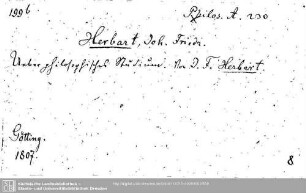 1996
Philos. A. 230
Herbart, Joh. Friedr.
Ueber philosophisches Studium. Von J. F. Herbart.
Götting.
1807.
8
Sächsische Landesbibliothek -
Staats- und Universitätsbibliothek Dresden